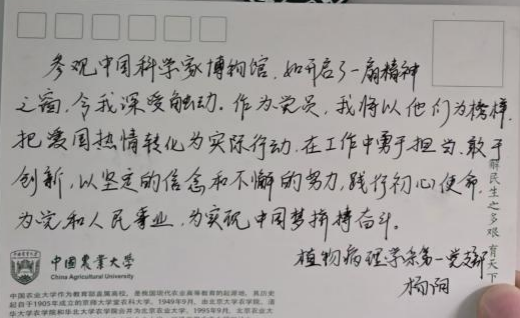 参观中国科学家博物馆，如开启了一扇精神
之窗，令我深受触动。作为党员，我将以他们为榜样，
把爱国热情转化为实际行动，在工作中勇于担当、敢于
创新，以坚定的信念和不懈的努力，践行初心使命，
为党和人民事业、为实现中国梦拼搏奋斗。
植物病理学系第一党支部
杨
解民生之多艰 育天下
中國農業大學
China Agricultural University
中国农业大学作为教育部直属高校，是我国现代农业高等教育的起源地，其历史
起自于1905年成立的京师大学堂农科大学。1949年9月，由北京大学农学院、清
华大学农学院和华北大学农学院合并为北京农业大学。1995年9月，